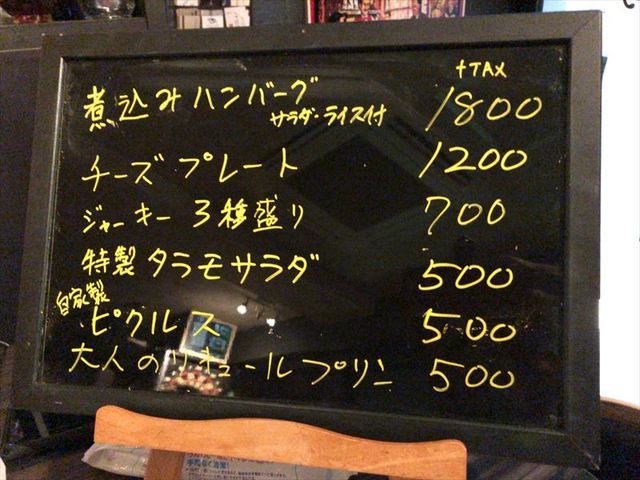 +TAX
煮込みハンバーグ サラダ・ライス付 1800
チーズプレート 1200
ジャーキー 3種盛り 700
特製タラモサラダ 500
自家製ピクルス 500
大人のリキュールプリン 500